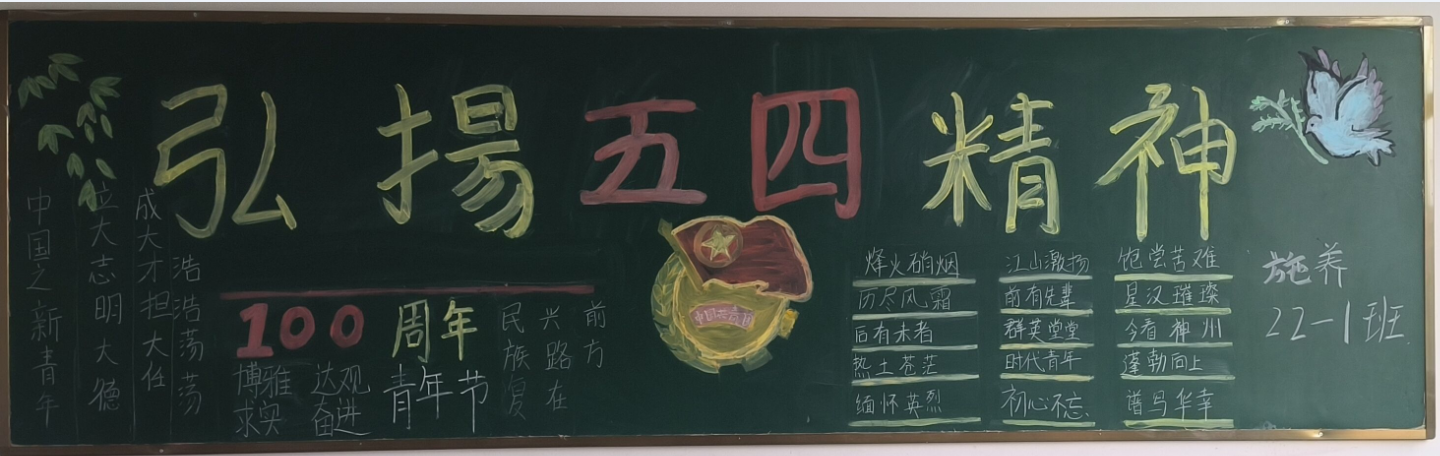 弘揚五四精神
中国之新青年
立大志明大德
成大才担大任
浩浩荡荡
100周年
青年节
博雅 达观
求实 奋进
民族复
兴路在
前方
烽火硝烟
历尽风霜
后有未者
热土苍茫
缅怀英烈
江山激扬
前有先辈
群英堂堂
时代青年
初心不忘
饱尝苦难
星汉璀璨
今看神州
蓬勃向上
谱写华章
施养
22-1班